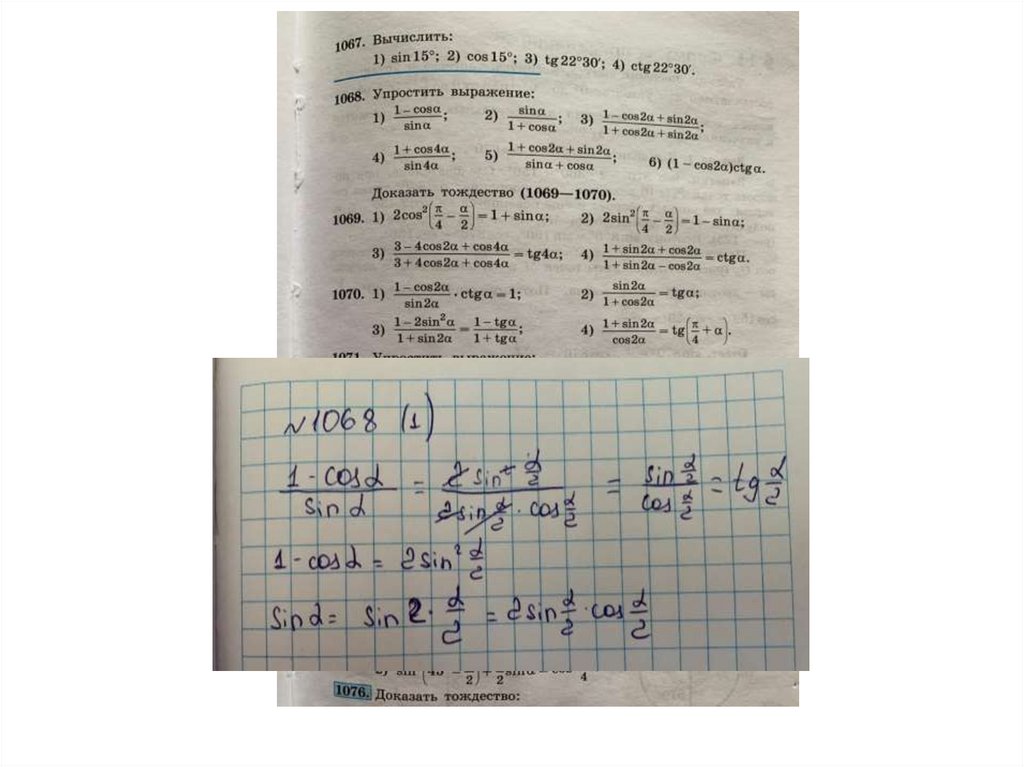 1067. Вычислить:
1) sin 15°; 2) cos 15°; 3) tg 22°30′; 4) ctg 22°30′.
1068. Упростить выражение:
1) (1 − cosα)/(sinα); 2) (sinα)/(1 + cosα); 3) (1 − cos2α + sin2α)/(1 + cos2α + sin2α);
4) (1 + cos4α)/(sin4α); 5) (1 + cos2α + sin2α)/(sinα + cosα); 6) (1 − cos2α)ctgα.
Доказать тождество (1069—1070).
1069. 1) 2cos²(π/4 − α/2) = 1 + sinα; 2) 2sin²(π/4 − α/2) = 1 − sinα;
3) (3 − 4cos2α + cos4α)/(3 + 4cos2α + cos4α) = tg4α; 4) (1 + sin2α + cos2α)/(1 + sin2α − cos2α) = ctgα.
1070. 1) (1 − cos2α)/(sin2α) · ctgα = 1; 2) (sin2α)/(1 + cos2α) = tgα;
3) (1 − 2sin²α)/(1 + sin2α) = (1 − tgα)/(1 + tgα); 4) (1 + sin2α)/(cos2α) = tg(π/4 + α).
1071. Упростить выражение:
№1068 (1)
(1 - cosα)/(sinα) = (2sin² α/2)/(2sin α/2 · cos α/2) = (sin α/2)/(cos α/2) = tg α/2
1 - cosα = 2sin² α/2
sinα = sin 2 · α/2 = 2sin α/2 · cos α/2
1076. Доказать тождество: